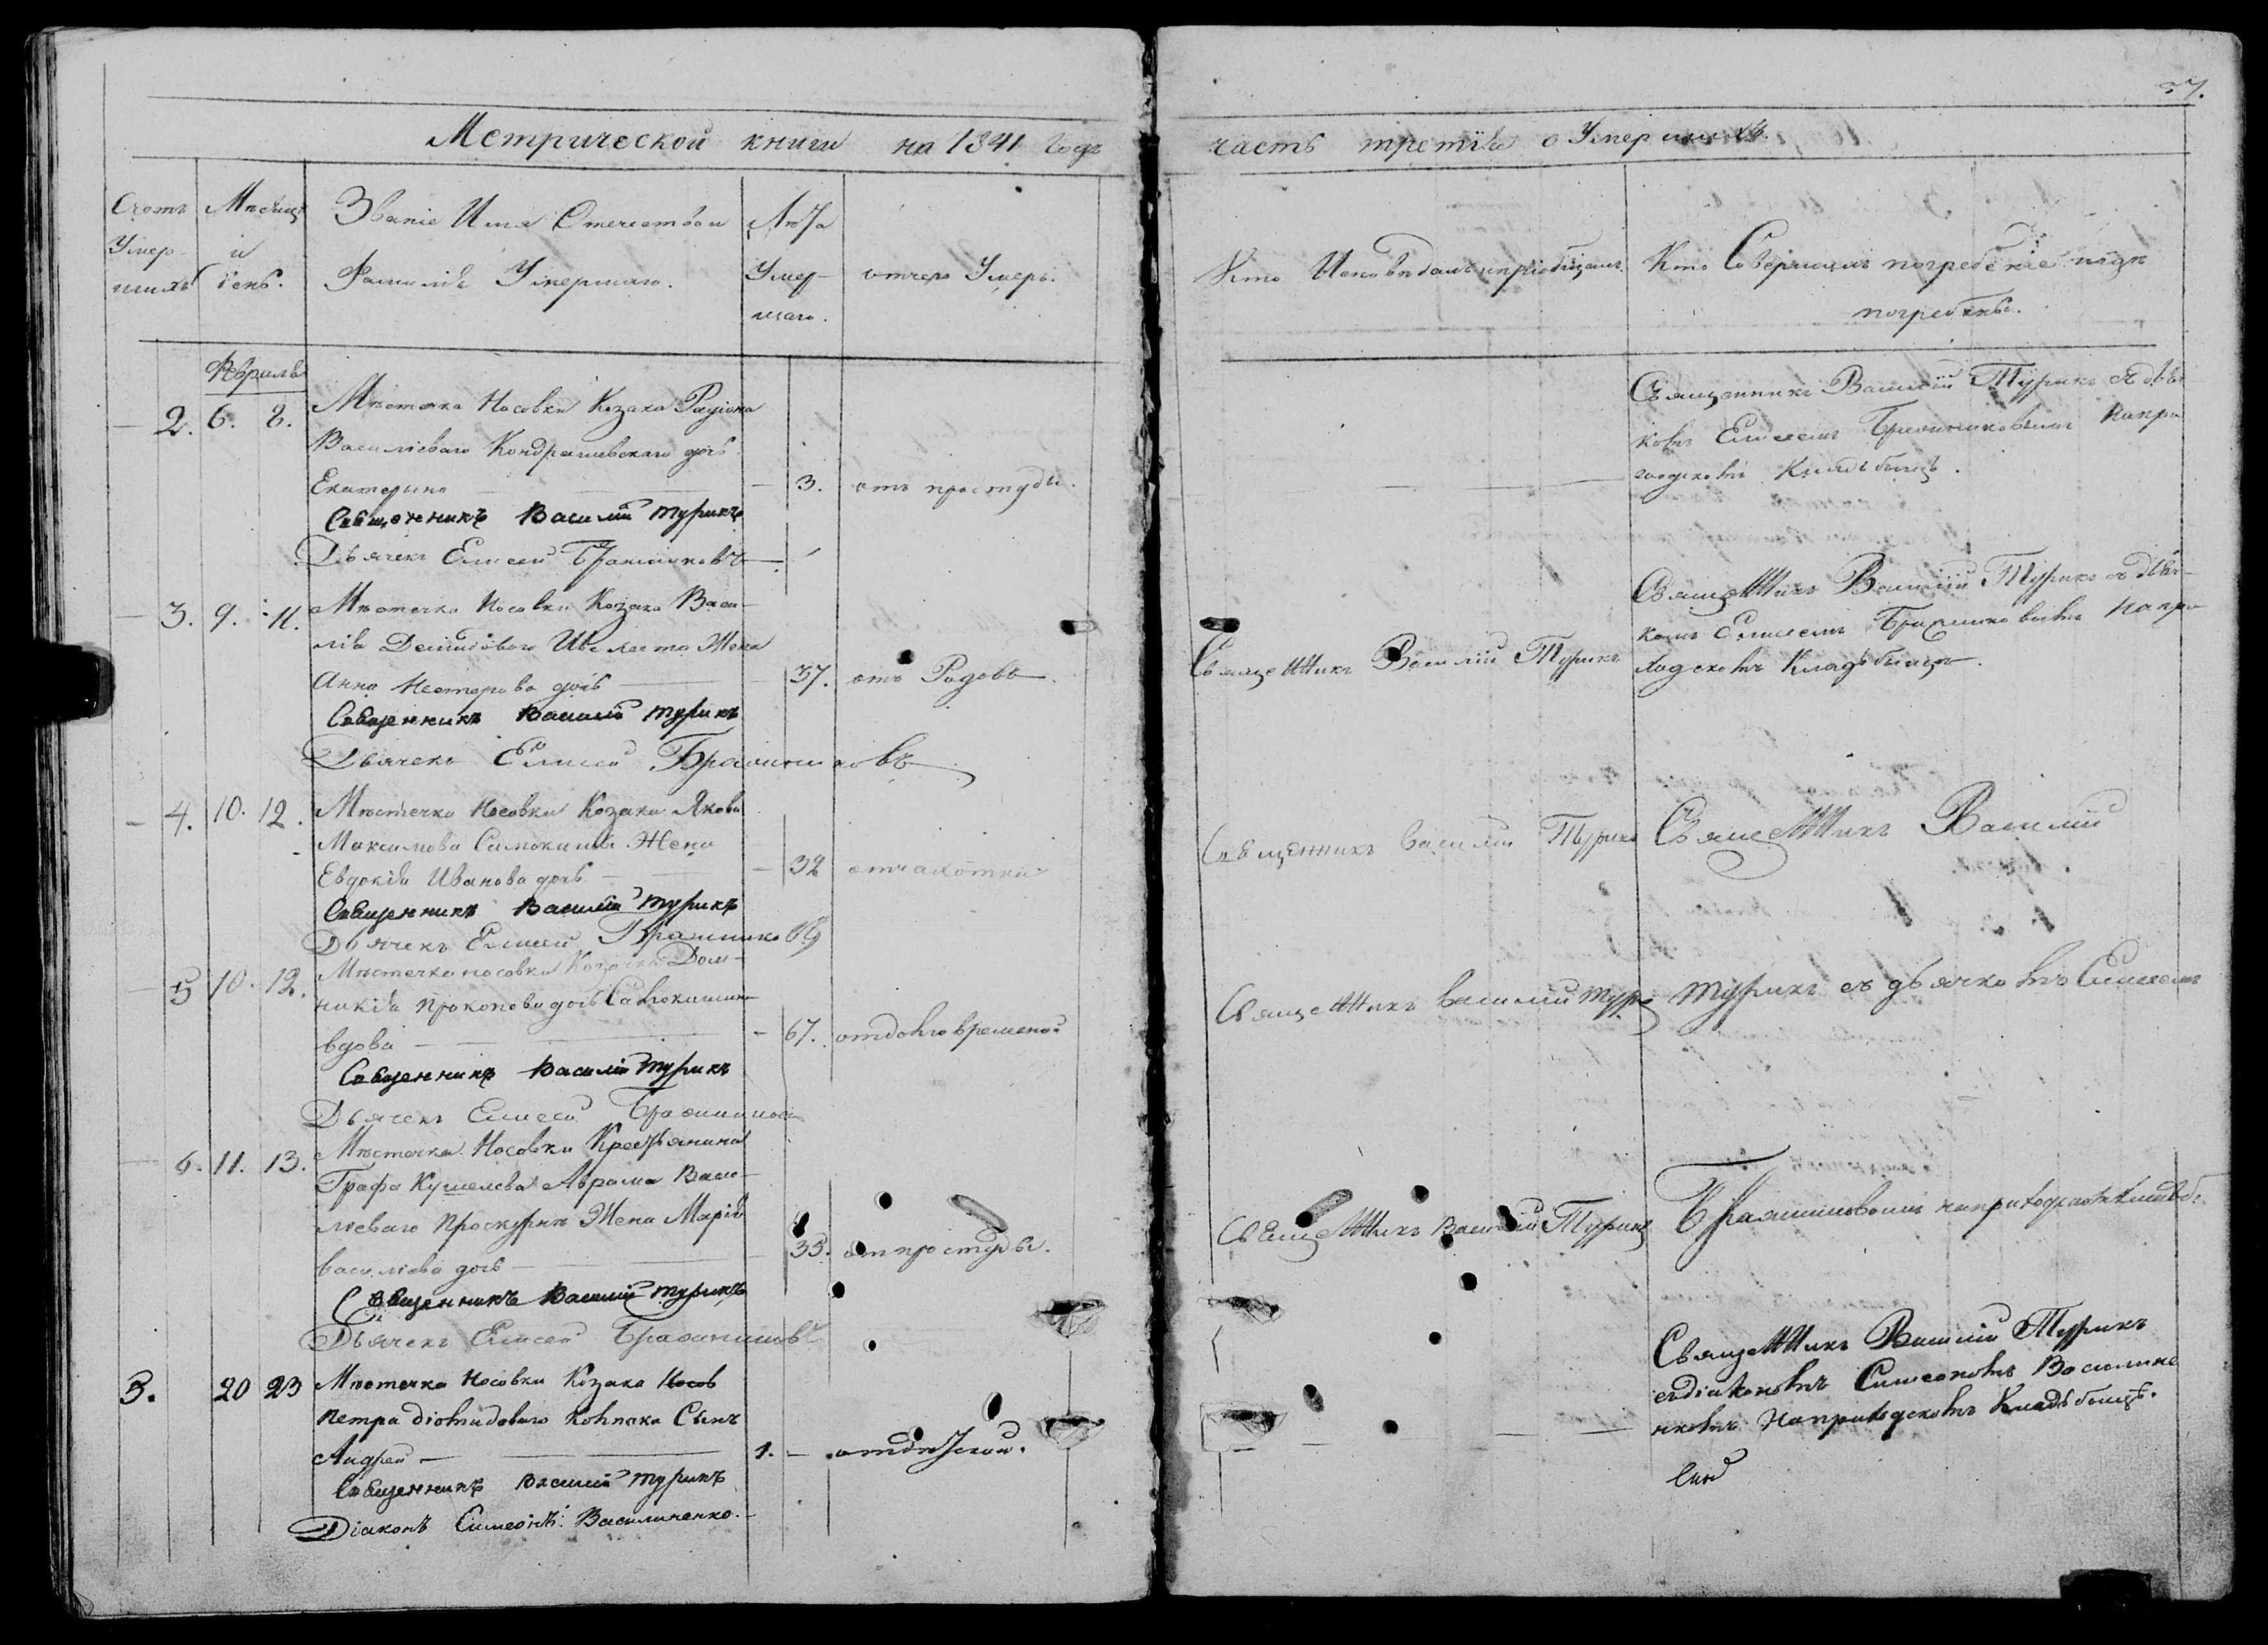 Метрической книги на 1841 Годъ
часть третія о Умершихъ.
Счетъ Умер- шихъ
Мѣсяцъ и день.
Званіе Имя Отчество и
Фамилія Умершаго.
Лѣта Умер- шаго.
отчего Умеръ.
Кто Исповѣдалъ и пріобщалъ.
Кто Совершилъ погребеніе и гдѣ
погребены.
Февраля
2. 6. 8. Мѣстечка Носовки Козака Радіона
Василіеваго Кондрашевскаго дочь
Екатерина 3. отъ простуды.
Священникъ Василій Турикъ
Дьячекъ Елисей Брашниковъ
Священникъ Василій Турикъ съ дья-
ковъ Елисеемъ Брашниковымъ на при
ходскомъ Кладьбищѣ.
3. 9. 11. Мѣстечка Носовки Козака Васи-
лія Демидоваго Жена
Анна Нестерова дочь 37. отъ Родовъ.
Священникъ Василій Турикъ
Дьячекъ Елисей Брашниковъ
Священникъ Василій Турикъ
Священникъ Василій Турикъ съ дьяч-
комъ Елисеемъ Брашниковымъ на при-
ходскомъ Кладьбищѣ.
4. 10. 12. Мѣстечка Носовки Козака Якова
Максимова Самокиши Жена
Евдокія Иванова дочь 32 отчахотки
Священникъ Василій Турикъ
Дьячекъ Елисей Брашниковъ
Священникъ Василій Турикъ
Священникъ Василій
5 10. 12. Мѣстечка носовки Козачка Дом-
никія Прокопова дочь Самокишина
вдова 67. отдолговремено
Священникъ Василій Турикъ
Дьячекъ Елисей Брашниковъ
Священникъ Василій Турикъ
Турикъ съ дьячкомъ Елисеемъ
6. 11. 13. Мѣстечка Носовки Крестьянина
Графа Кушелева Аврама Васи-
лѣеваго Проскурни Жена Марія
василіева дочь 35. отпростуды.
Священникъ Василій Турикъ
Дьячекъ Елисей Брашниковъ
Священникъ Василій Турикъ
Брашниковымъ наприходскомъ
3. 20 23 Мѣстечка Носовки Козака Носов
Петра діомидоваго Колпака Сынъ
Андрей 1. отдѣтской.
Священникъ Василій Турикъ
Діаконъ Симеонъ Василиненко.
Священникъ Василій Турикъ
съдіакономъ Симеономъ Василине
нкомъ Наприходскомъ Кладьбищѣ.